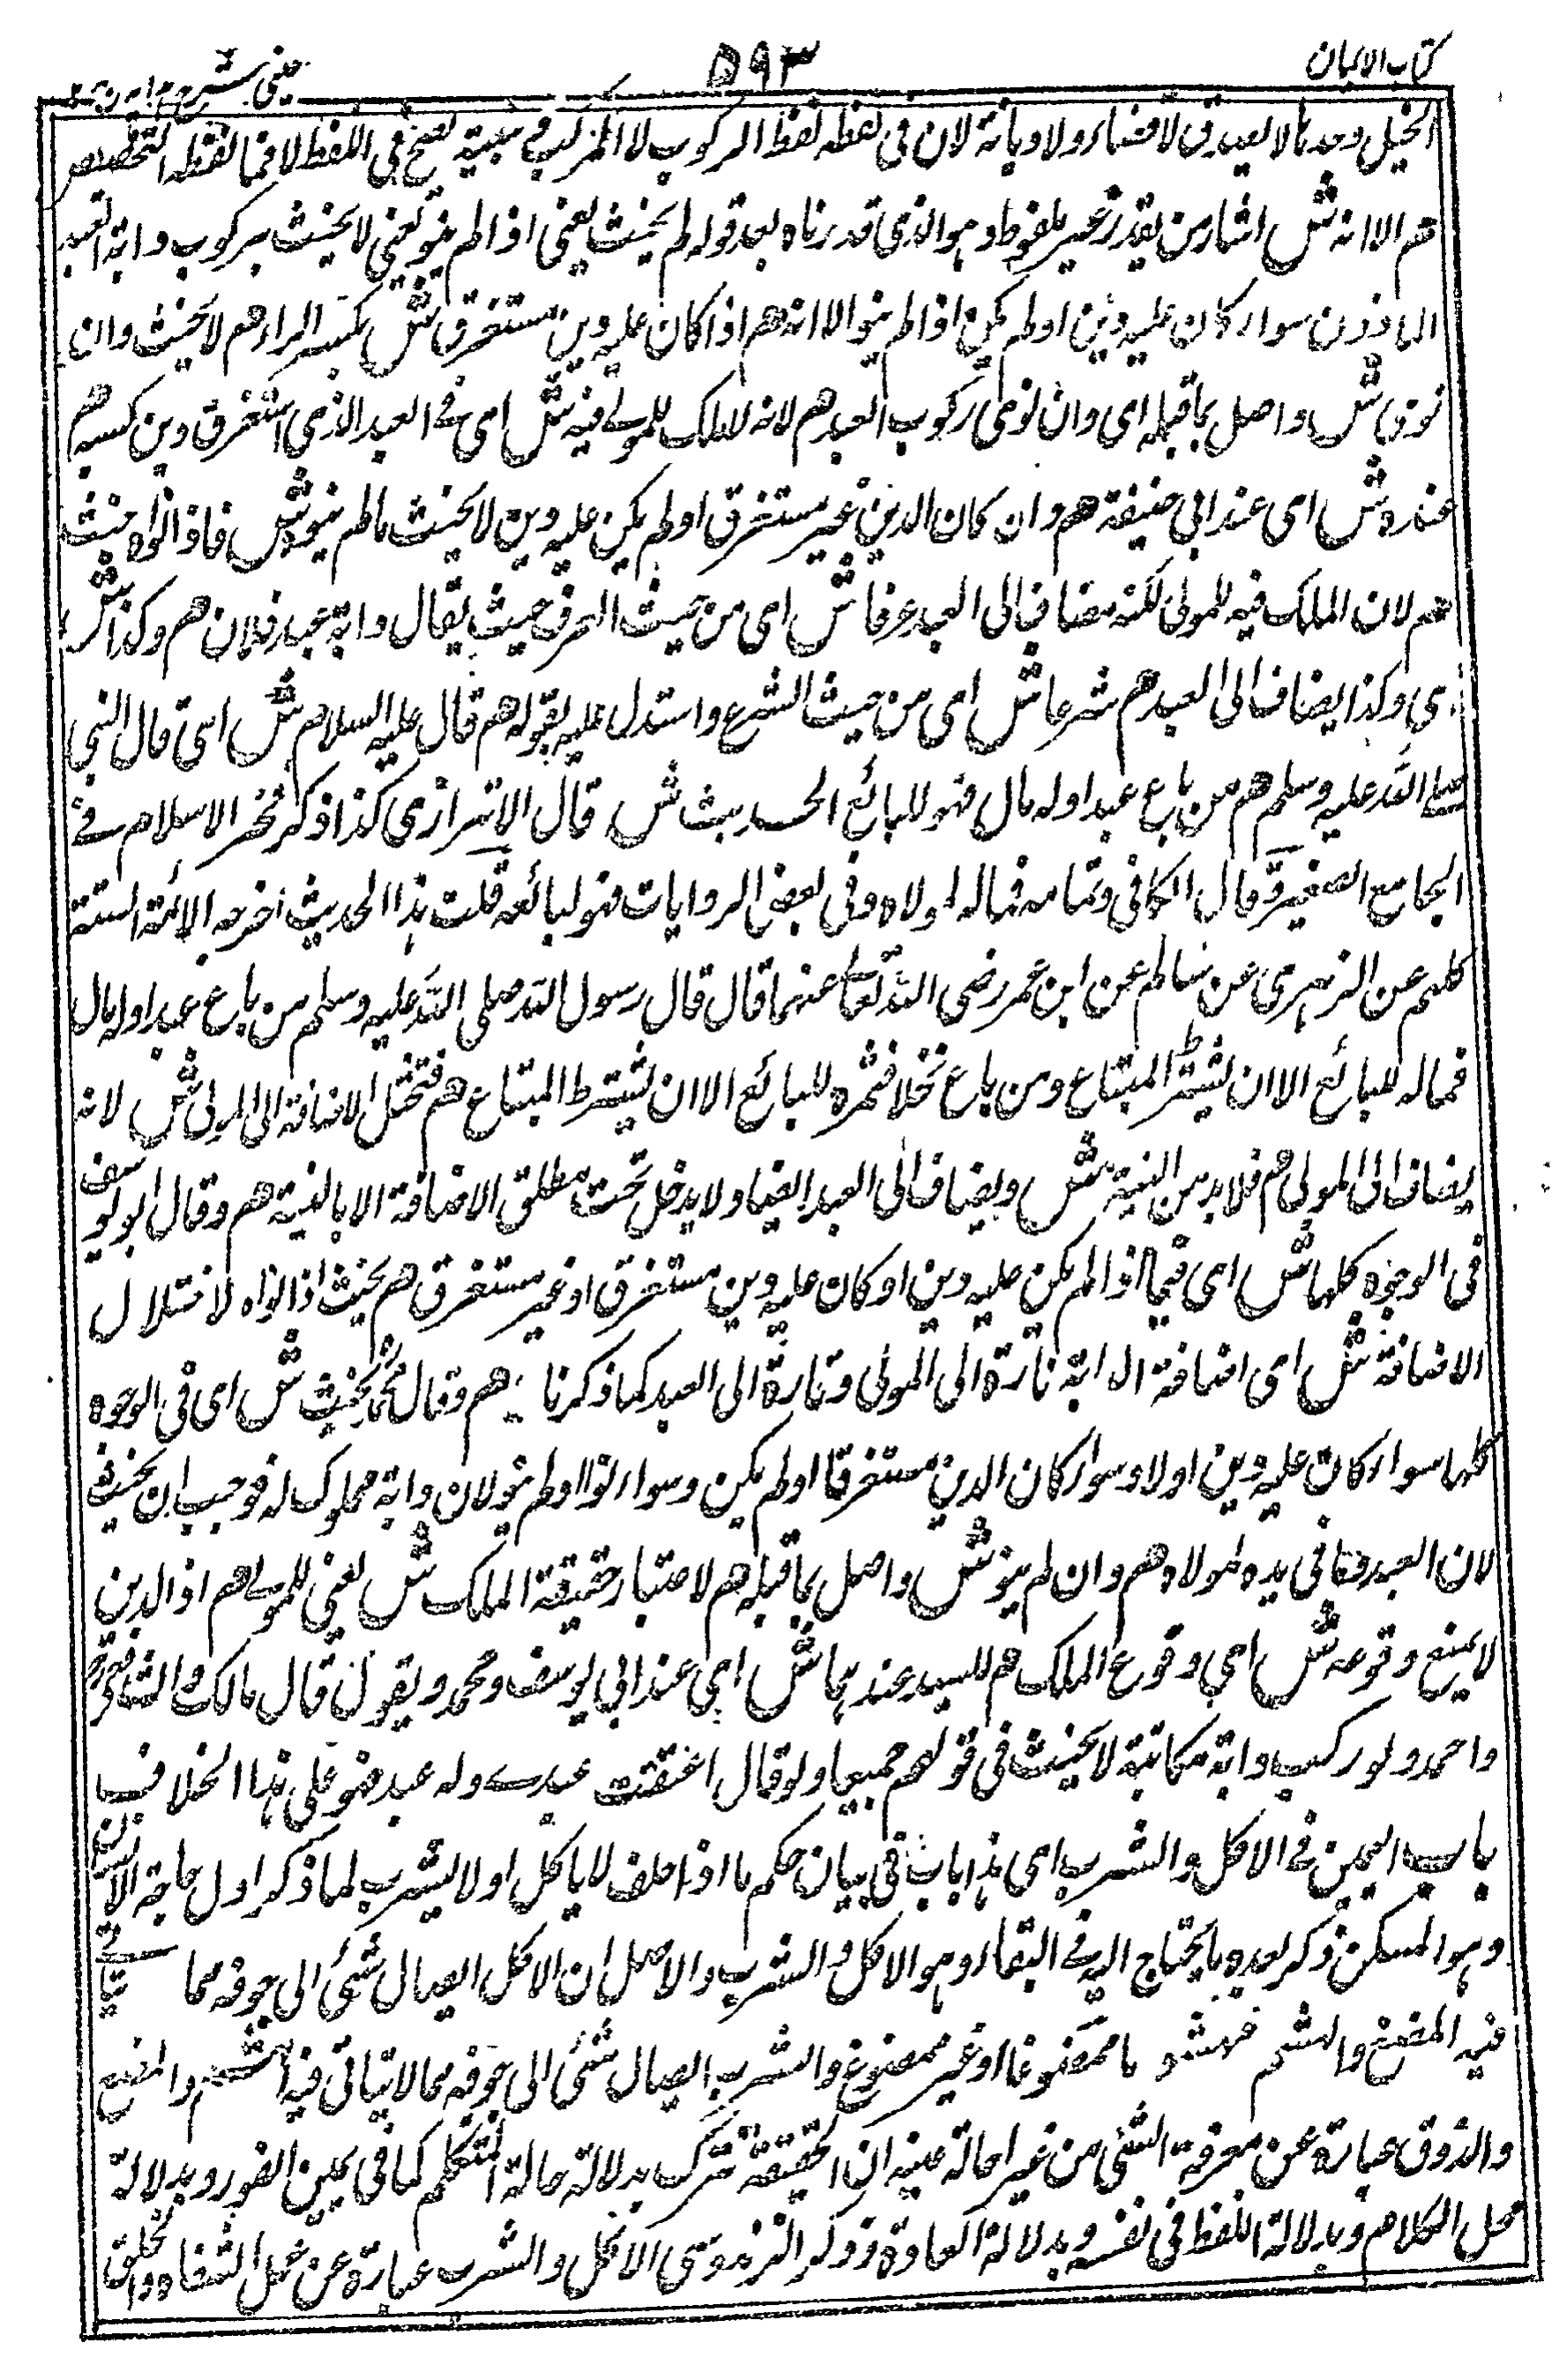 كتاب الايمان ٥٩٣ عيني شرح هدايه
الخيل وحدها لا يصدق لا قضاء ولا ديانة لان في لفظه لفظ الركوب لا المركوب نية تصح في اللفظ لا فيما لفظه التخصيص
هم الا انه ش اشار من يقدر غير ملفوظ وهو الذي قدرناه بعد قوله لم يحنث يعني اذا لم ينو يعني لا يحنث بركوب دابة العبد
الماذون سواء كان عليه دين او لم يكن اذا لم ينو الا انه هم اذا كان عليه دين مستغرق ش بكسر الراء هم لا يحنث وان
نوى ش واصل بما قبله اى وان نوى ركوب العبد هم لانه لا ملك للمولے فيه ش اى فے العبد الذى استغرق دين كسبه هم
عنده ش اى عند ابي حنيفة هم وان كان الدين غير مستغرق او لم يكن عليه دين لا يحنث مالم ينوه ش فاذا نواه حنث
هم لان الملك فيه للمولى لكنه مضاف الى العبد عرفا ش اى من حيث العرف حيث يقال دابة عبد فلان هم وكذا ش
اى وكذا يضاف الى العبد هم شرعا ش اى من حيث الشرع واستدل عليه بقوله هم قال عليه السلام ش اى قال النبى
صلے الله عليه وسلم هم من باع عبدا وله مال فهو للبائع الحديث ش قال الاترازى كذا ذكر فخر الاسلام فے
الجامع الصغير وقال الكافى وتمامه فماله لمولاه وفى بعض الروايات فهو لبائعه قلت هذا الحديث اخرجه الائمة الستة
كلهم عن الزهرى عن سالم عن ابن عمر رضى الله تعالے عنهما قال قال رسول الله صلى الله عليه وسلم من باع عبدا وله مال
فماله للبائع الا ان يشترط المبتاع ومن باع نخلا فثمره للبائع الا ان يشترط المبتاع هم فتختل الاضافة الى المولى ش لانه
يضاف الى المولى هم فلا بد من النية ش ويضاف الى العبد ايضا ولا يدخل تحت مطلق الاضافة الا بالنية هم وقال ابو يوسف
فى الوجوه كلها ش اى فيما اذا لم يكن عليه دين او كان عليه دين مستغرق او غير مستغرق هم يحنث اذا نواه لاختلال
الاضافة ش اى اضافة الدابة تارة الى المولى وتارة الى العبد كما ذكرنا هم وقال محمد يحنث ش اى فى الوجوه
كلها سواء كان عليه دين اولا وسواء كان الدين مستغرقا او لم يكن وسواء نوا او لم ينو لان دابة مملوك له فوجب ان يحنث
لان العبد وما فى يده لمولاه هم وان لم ينو ش واصل بما قبله هم لاعتبار حقيقة الملك ش يعنى للمولے هم اذ الدين
لا يمنع وقوعه ش اى وقوع الملك هم للسيد عندهما ش اى عند ابي يوسف ومحمد وبقول قال مالك والشافعى
واحمد ولو ركب دابة مكاتبة لا يحنث فى قولهم جميعا ولو قال اعتقت عبدے وله عبد فهو على هذا الخلاف
باب اليمين فے الاكل والشرب اى هذا باب فى بيان حكم ما اذا حلف لا ياكل او لا يشرب لما ذكر اول حاجة الانسان
وهو المسكن ذكر بعده ما يحتاج اليه فے البقاء وهو الاكل والشرب والاصل ان الاكل ايصال شئ الى جوفه مما يتاتے
فيه المضغ والهشم مهشوما ممضوغا او غير ممضوغ والشرب ايصال شئ الى جوفه مما لا يتاتى فيه الهشم والمضغ
والذوق عبارة عن معرفة الشئ من غير احالة عينه ان الحقيقة تترك بدلالة حالة المتكلم كما فى يمين الفور وبدلالة
محل الكلام وبدلالة اللفظ فى نفسه وبدلالة العادة وذكر الزندوسى الاكل والشرب عبارة عن عمل الشفاه والحلق